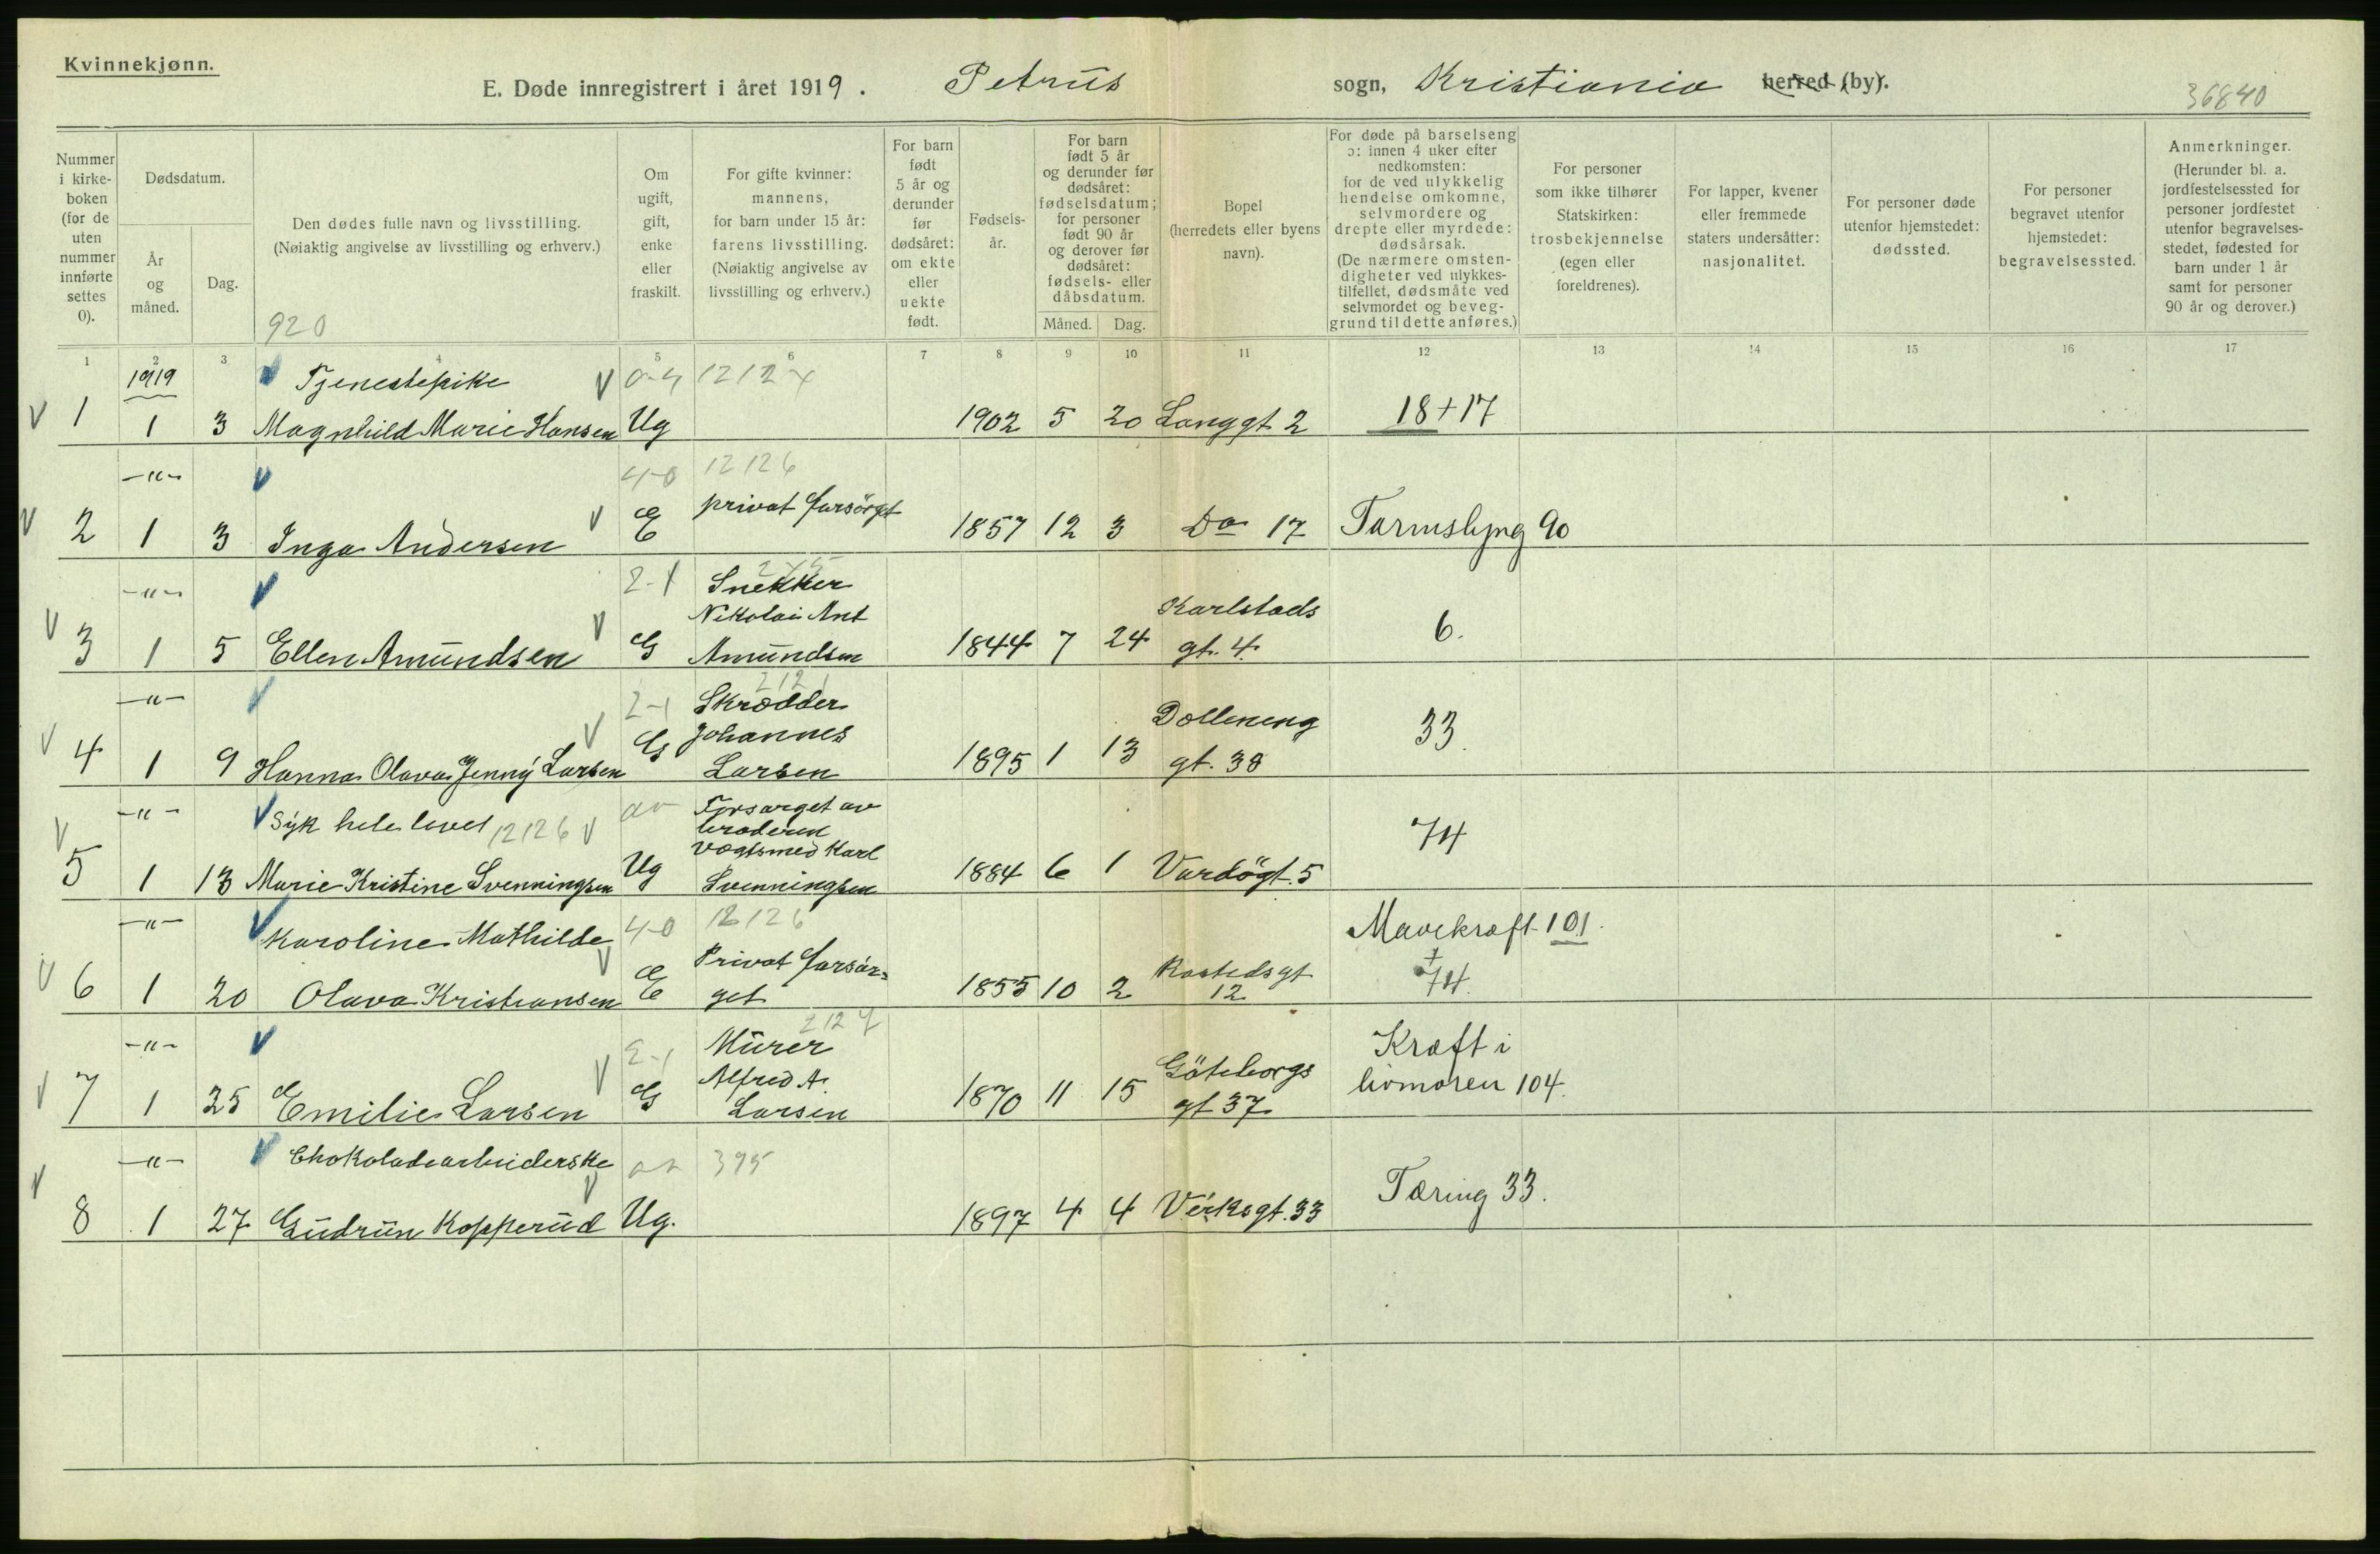 Kvinnekjønn.
E. Døde innregistrert i året 1919. Petrus sogn, Kristiania herred (by).
36840
Nummer i kirke-boken (for de uten nummer innførte settes 0).
Dødsdatum.
År og måned.
Dag.
Den dødes fulle navn og livsstilling.
(Nøiaktig angivelse av livsstilling og erhverv.)
920
Om ugift, gift, enke eller fraskilt.
For gifte kvinner: mannens, for barn under 15 år: farens livsstilling.
(Nøiaktig angivelse av livsstilling og erhverv.)
For barn født 5 år og derunder før dødsåret: om ekte eller uekte født.
Fødsels-år.
For barn født 5 år og derunder før dødsåret: fødselsdatum; for personer født 90 år og derover før dødsåret: fødsels- eller dåbsdatum.
Måned. Dag.
Bopel (herredets eller byens navn).
For døde på barselseng ɔ: innen 4 uker efter nedkomsten: for de ved ulykkelig hendelse omkomne, selvmordere og drepte eller myrdede: dødsårsak.
(De nærmere omsten-digheter ved ulykkes-tilfellet, dødsmåte ved selvmordet og beveg-grund til dette anføres.)
For personer som ikke tilhører Statskirken: trosbekjennelse (egen eller foreldrenes).
For lapper, kvener eller fremmede staters undersåtter: nasjonalitet.
For personer døde utenfor hjemstedet: dødssted.
For personer begravet utenfor hjemstedet: begravelsessted.
Anmerkninger.
(Herunder bl. a. jordfestelsessted for personer jordfestet utenfor begravelses-stedet, fødested for barn under 1 år samt for personer 90 år og derover.)
1 2 3 4 5 6 7 8 9 10 11 12 13 14 15 16 17
1919 Tjenestepike
1 1 3 Magnhild Marie Hansen Ug 1902 5 20 Langgt 2 18+17
-"- 4-0 12126
privat forsörget
2 1 3 Inga Andersen E 1857 12 3 Do 17 Tarmslyng 90
-"- 2-1 Snekker
Nikolai Ant Karlstads
3 1 5 Ellen Amundsen G Amundsen 1844 7 24 gt. 4. 6.
-"- 2-1 2121 Skrædder
Johannes Dælleneng
4 1 9 Hanna Olava Jenny Larsen G Larsen 1895 1 13 gt. 38 33.
-"- Syk hele livet 12126 Forsørget av
broderen
Vogtsmed Karl
5 1 13 Marie Kristine Svenningsen Ug Svenningsen 1884 6 1 Vardögt. 5 74
-"- Karoline Mathilde 4-0 12126
Privat forsör- Rostedsgt Mavekræft 101.
6 1 20 Olava Kristiansen E get 1855 10 2 12 + 74.
-"- 2-1 Murer
Alfred A. Göteborgs Kræft i
7 1 25 Emilie Larsen G Larsen 1870 11 15 gt 37 livmoren 104.
-"- Chokoladearbeiderske 395
8 1 27 Gudrun Kopperud Ug. 1897 4 4 Verksgt. 33 Tæring 33.